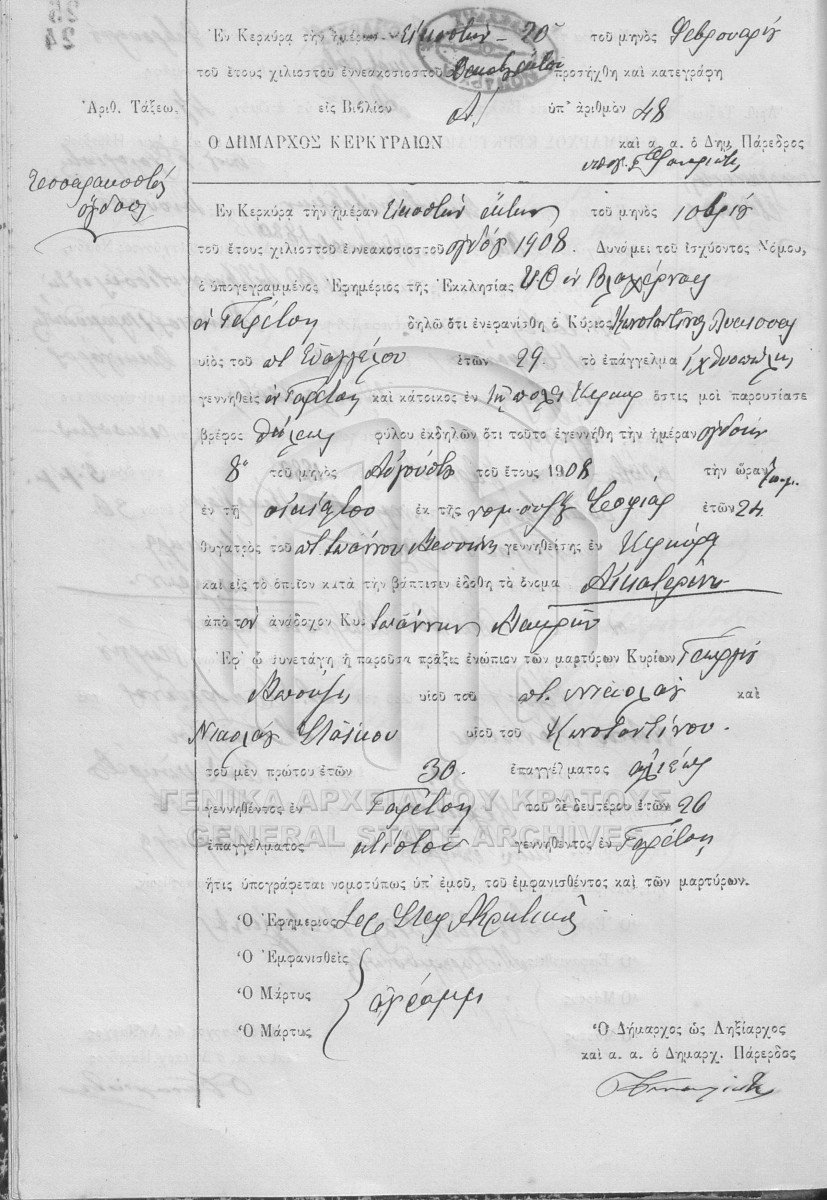 Ἐν Κερκύρᾳ τὴν ἡμέραν Εἰκοστὴν 20 τοῦ μηνὸς Φεβρουαρίου
τοῦ ἔτους χιλιοστοῦ ἐννεακοσιοστοῦ προσήχθη καὶ κατεγράφη
Ἀριθ. Τάξεως εἰς Βιβλίον Α/ ὑπ' ἀριθμὸν 48
Ὁ ΔΗΜΑΡΧΟΣ ΚΕΡΚΥΡΑΙΩΝ καὶ α. α. ὁ Δημ. Πάρεδρος
Τεσσαρακοστὴ
ὀγδόη
Ἐν Κερκύρᾳ τὴν ἡμέραν Εἰκοστὴν ἕκτην τοῦ μηνὸς 10βρίου
τοῦ ἔτους χιλιοστοῦ ἐννεακοσιοστοῦ ὀγδόου 1908. Δυνάμει τοῦ ἰσχύοντος Νόμου,
ὁ ὑπογεγραμμένος Ἐφημέριος τῆς Ἐκκλησίας ΥΘ ἐν Βλαχέρνας
ἐν Γαρίτσῃ δηλῶ ὅτι ἐνεφανίσθη ὁ Κύριος Κωνσταντῖνος
υἱὸς τοῦ π. Εὐαγγέλου ἐτῶν 29. τὸ ἐπάγγελμα ἰχθυοπώλης
γεννηθεὶς ἐν Γαρίτσῃ καὶ κάτοικος ἐν τῇ πόλει Κερκύρ ὅστις μοὶ παρουσίασε
βρέφος θήλεος φύλου ἐκδηλῶν ὅτι τοῦτο ἐγεννήθη τὴν ἡμέραν ὀγδόην
8η τοῦ μηνὸς Αὐγούστου τοῦ ἔτους 1908 τὴν ὥραν
ἐν τῇ οἰκίᾳ του ἐκ τῆς νομ. συζ. Σοφίας ἐτῶν 24
θυγατρὸς τοῦ π. Ἰωάννου γεννηθείσης ἐν Κερκύρᾳ
καὶ εἰς τὸ ὁποῖον κατὰ τὴν βάπτισιν ἐδόθη τὸ ὄνομα Αἰκατερίνη
ἀπὸ τὸν ἀνάδοχον Κυρ Ἰωάννην
Ἐφ' ᾧ συνετάγη ἡ παροῦσα πρᾶξις ἐνώπιον τῶν μαρτύρων Κυρίων Γεωργίου
υἱοῦ τοῦ π. Νικολάου καὶ
Νικολάου υἱοῦ τοῦ Κωνσταντίνου.
τοῦ μὲν πρώτου ἐτῶν 30. ἐπαγγέλματος ἁλιέως
γεννηθέντος ἐν Γαρίτσῃ τοῦ δὲ δευτέρου ἐτῶν 26
ΓΕΝΙΚΑ ΑΡΧΕΙΑ ΤΟΥ ΚΡΑΤΟΥΣ
GENERAL STATE ARCHIVES
ἐπαγγέλματος κτίστου γεννηθέντος ἐν Γαρίτσῃ
ἥτις ὑπογράφεται νομοτύπως ὑπ' ἐμοῦ, τοῦ ἐμφανισθέντος καὶ τῶν μαρτύρων.
Ὁ Ἐφημέριος
Ὁ Ἐμφανισθεὶς
Ὁ Μάρτυς ἀγράμμ
Ὁ Μάρτυς
Ὁ Δήμαρχος ὡς Ληξίαρχος
καὶ α. α. ὁ Δημαρχ. Πάρεδρος